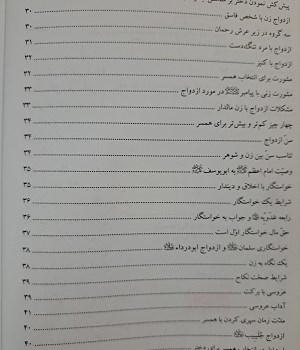 پیش‌کش نمودن دختر بر
ازدواج زن با شخص فاسق ۳۰
سه گروه در زیر عرش رحمان ۳۰
ازدواج با مرد تنگدست ۳۱
ازدواج با کنیز ۳۲
مشورت برای انتخاب همسر ۳۲
مشورت زنی با پیامبر ﷺ در مورد ازدواج ۳۳
مشکلات ازدواج با زن مالدار ۳۳
چهار چیز کم‌تر و بیش‌تر برای همسر ۳۴
سنّ ازدواج ۳۴
تناسب سنّ بین زن و شوهر ۳۴
وصیّت امام اعظم به ابویوسف ۳۵
خواستگار با اخلاق و دیندار ۳۵
شرایط یک خواستگار ۳۶
رابعه عدویّه و جواب به خواستگار ۳۶
حقّ مال خواستگار اوّل است ۳۷
خواستگاری سلمان و ازدواج ابودرداء ۳۸
یک نگاه به زن ۳۸
شرایط صحت نکاح ۳۹
عروسی با برکت ۳۹
آداب عروسی ۴۱
مدّت زمان سپری کردن با همسر ۴۰
ازدواج جُلَیبیب ۴۰